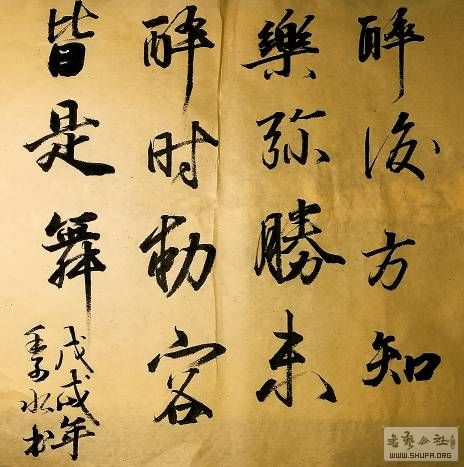 醉後方知
樂弥勝未
醉时動容
皆是舞
戊戌年
水书
书艺公社
WWW.SHUFA.ORG